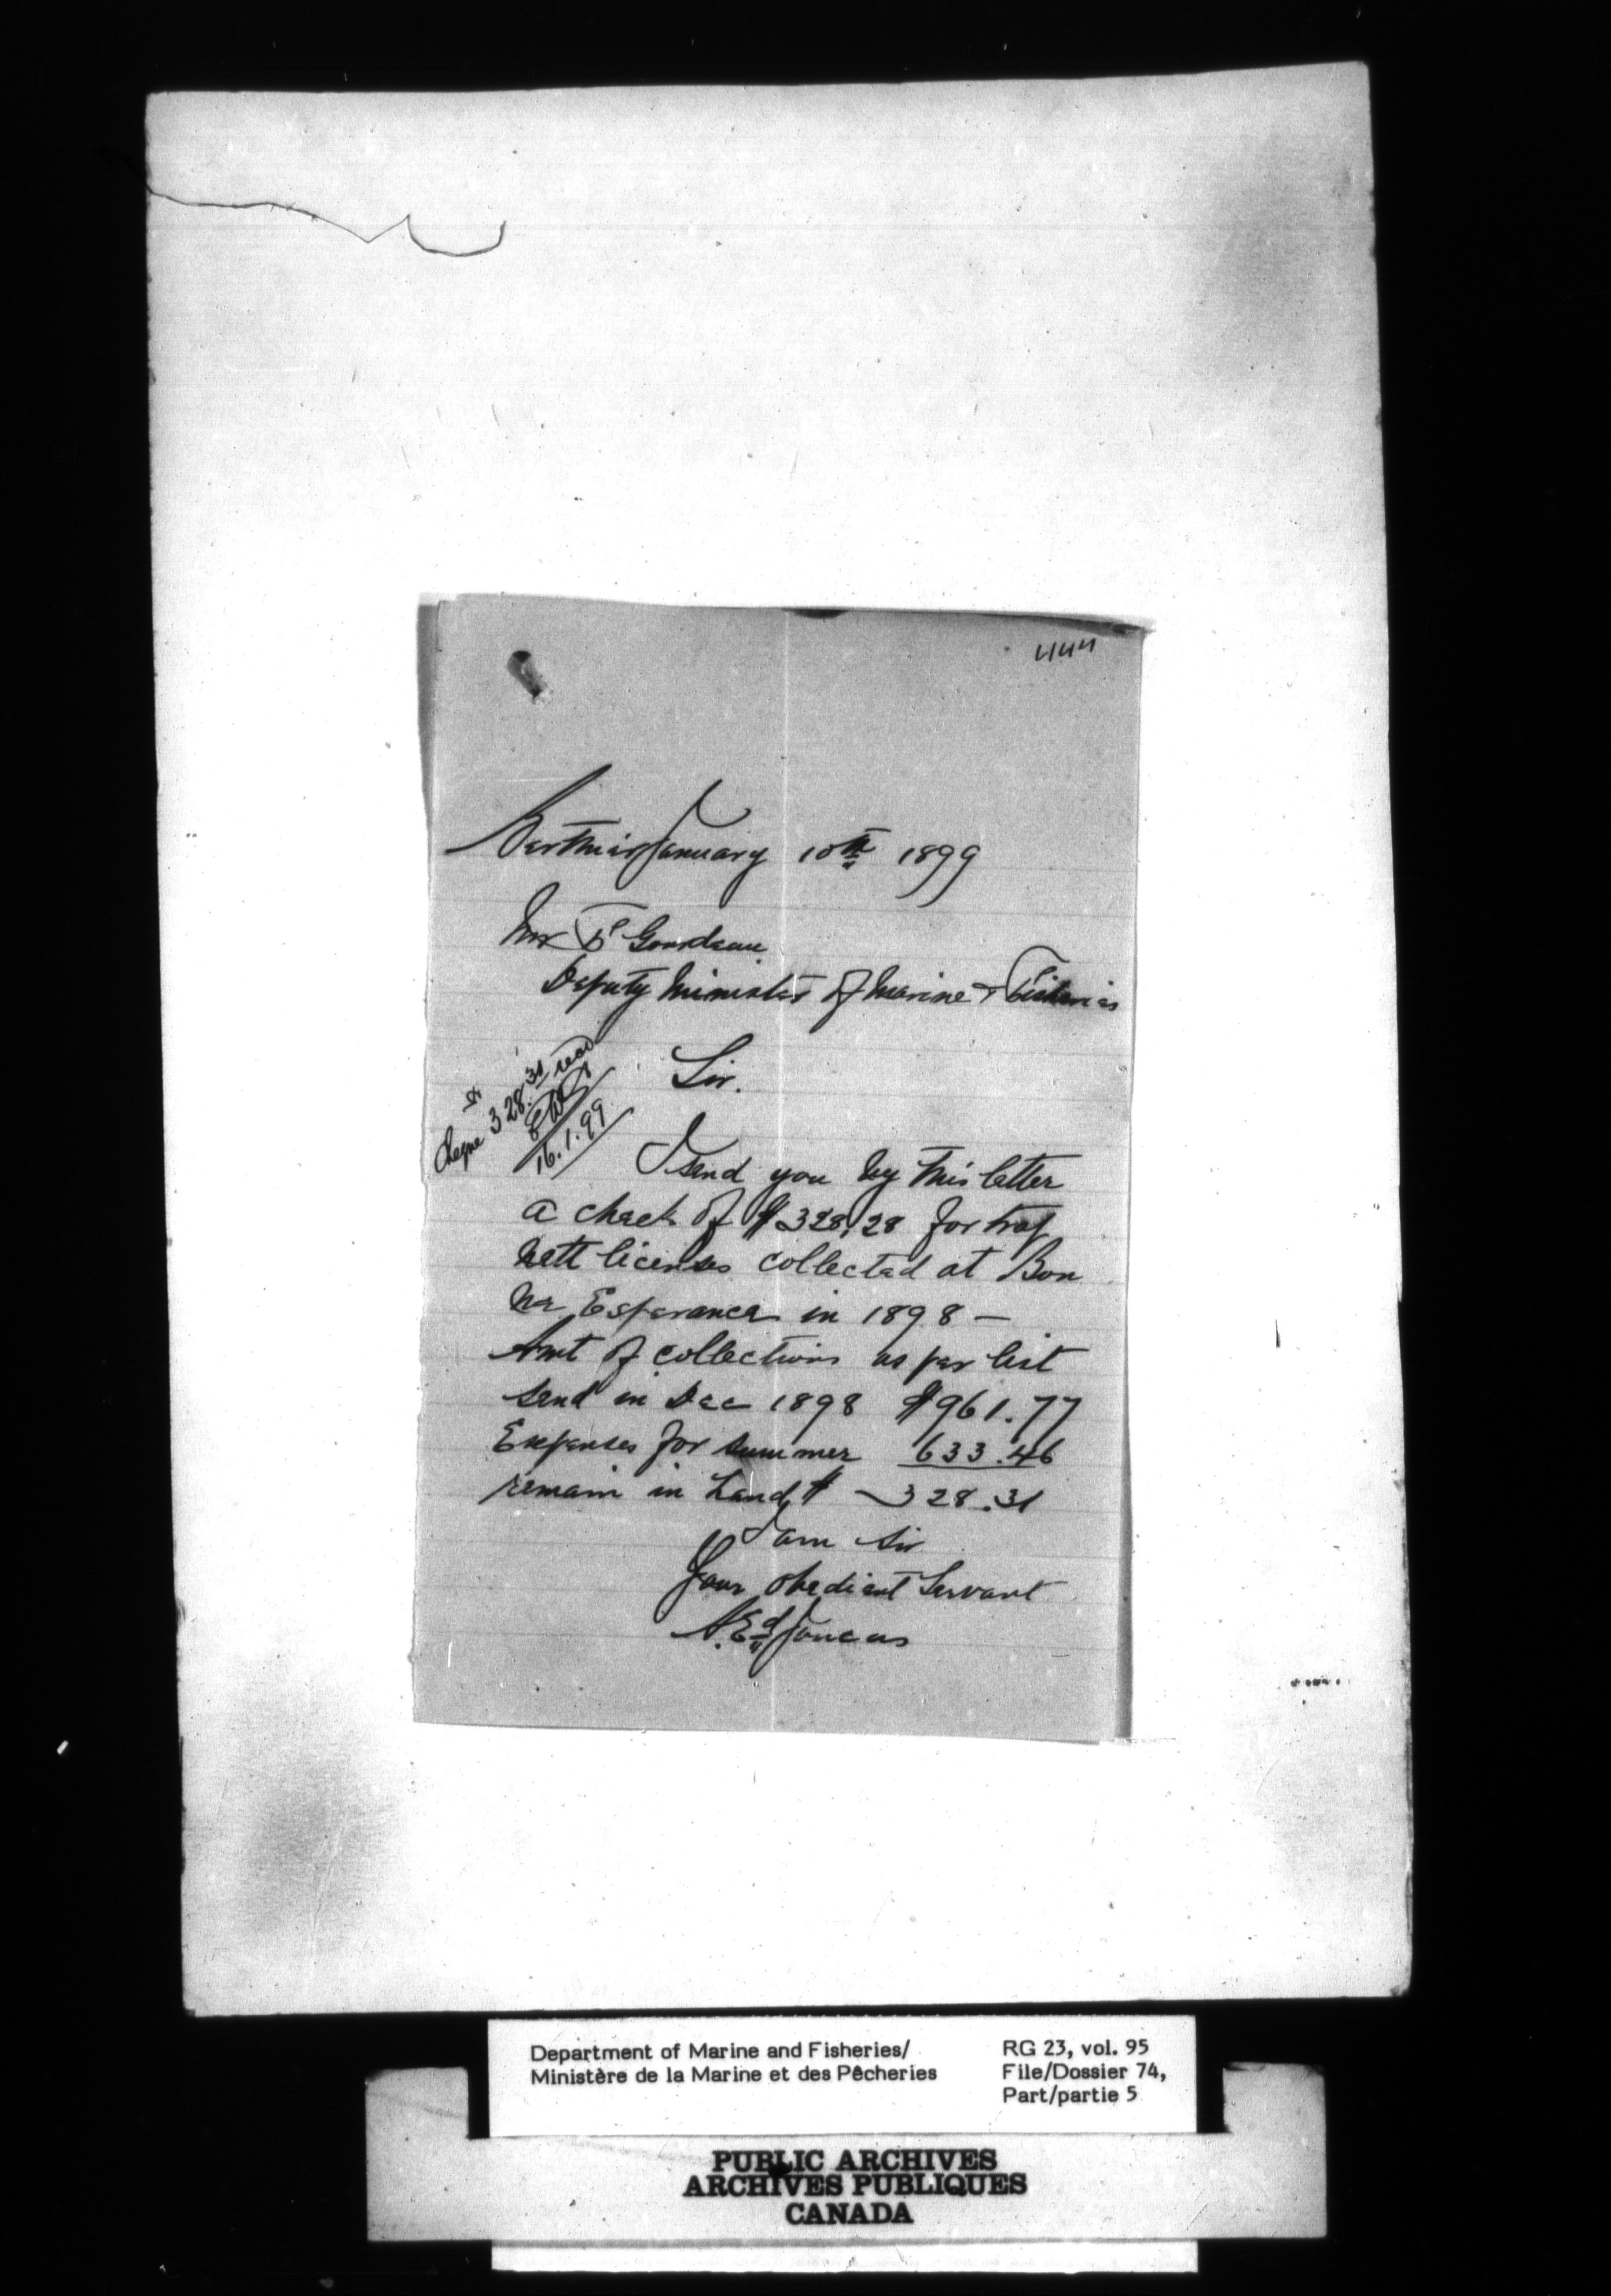 444
Berthier January 10th 1899
Mr F Gourdeau
Deputy Minister of Marine & Fisheries
Sir.
Cheque 328.31 recd
16.1.99
I send you by this letter
a check of $328.28 for trap
nett licenses collected at Bon
ne Esperance in 1898 —
Amt of collections as per list
send in Dec 1898 $961.77
Expenses for summer 633.46
remain in hand $ — 328.31
I am Sir
Your obedient Servant
N. Ed Joncas
Department of Marine and Fisheries/
Ministère de la Marine et des Pêcheries
RG 23, vol. 95
File/Dossier 74,
Part/partie 5
PUBLIC ARCHIVES
ARCHIVES PUBLIQUES
CANADA